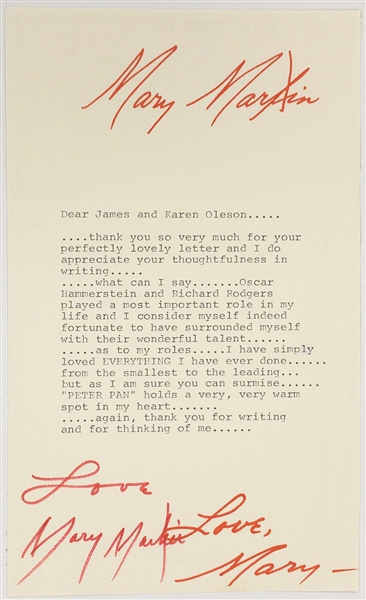 Mary Martin
Dear James and Karen Oleson.....
....thank you so very much for your
perfectly lovely letter and I do
appreciate your thoughtfulness in
writing.....
.....what can I say.......Oscar
Hammerstein and Richard Rodgers
played a most important role in my
life and I consider myself indeed
fortunate to have surrounded myself
with their wonderful talent......
.....as to my roles.....I have simply
loved EVERYTHING I have ever done......
from the smallest to the leading...
but as I am sure you can surmise......
"PETER PAN" holds a very, very warm
spot in my heart.......
.....again, thank you for writing
and for thinking of me......
Love
Mary Martin
Love,
Mary—